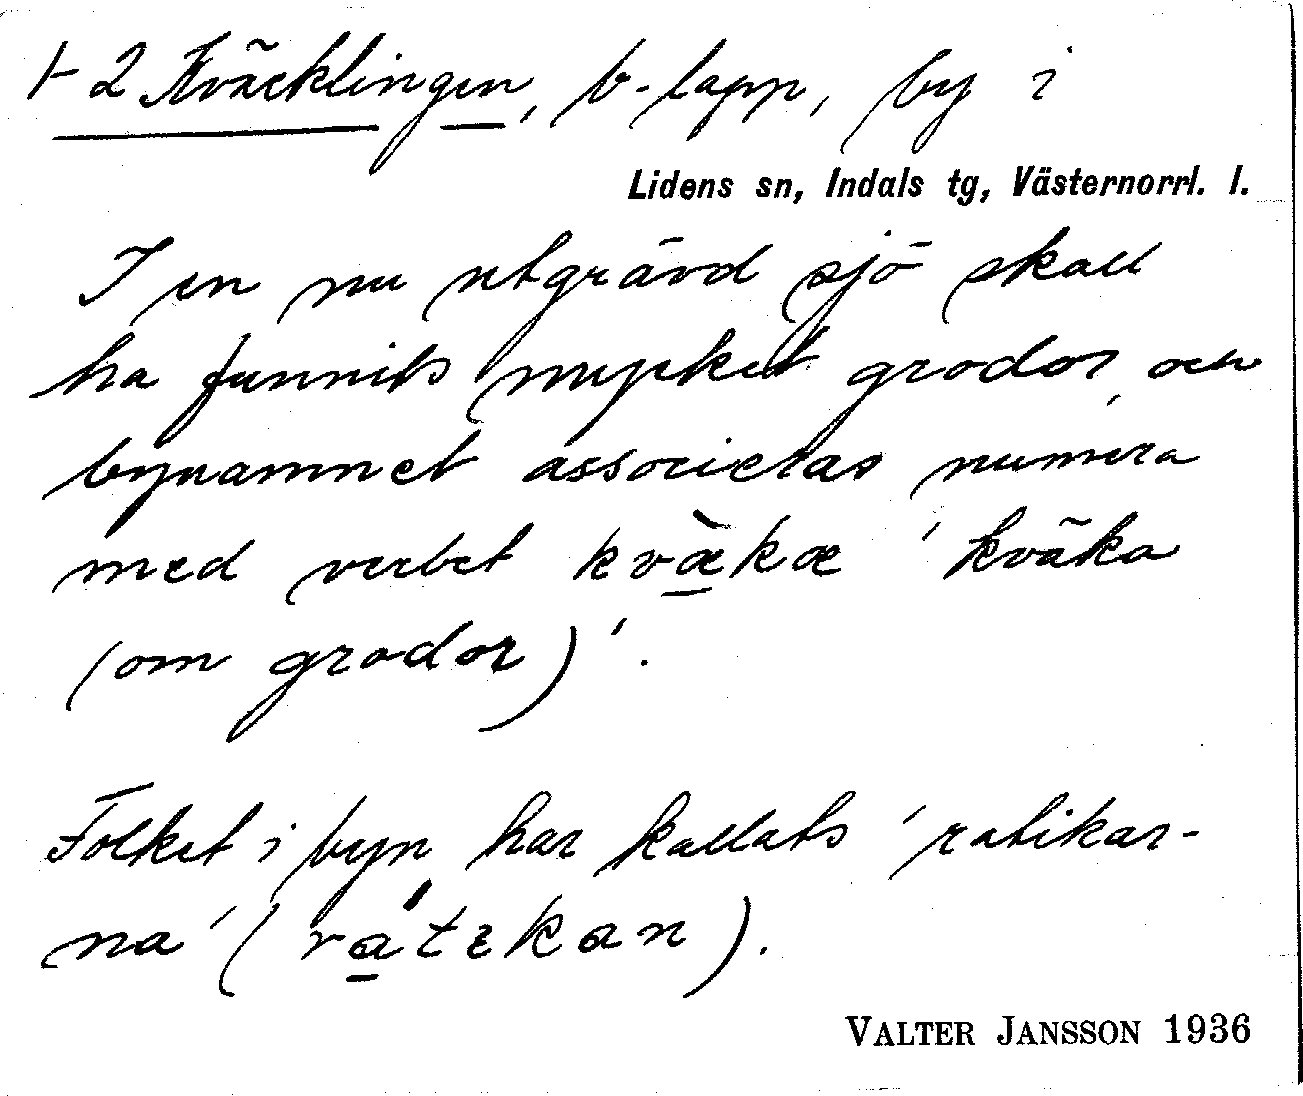 + 2 Kväcklingen, b-lapp, by i
Lidens sn, Indals tg, Västernorrl. l.
I en nu utgrävd sjö skall
ha funnits mycket grodor och
bynamnet associeras numera
med verbet kvæ̀kæ 'kväka
(om grodor)'.
Folket i byn har kallats 'ratikar-
na' (rátɩkan).
VALTER JANSSON 1936